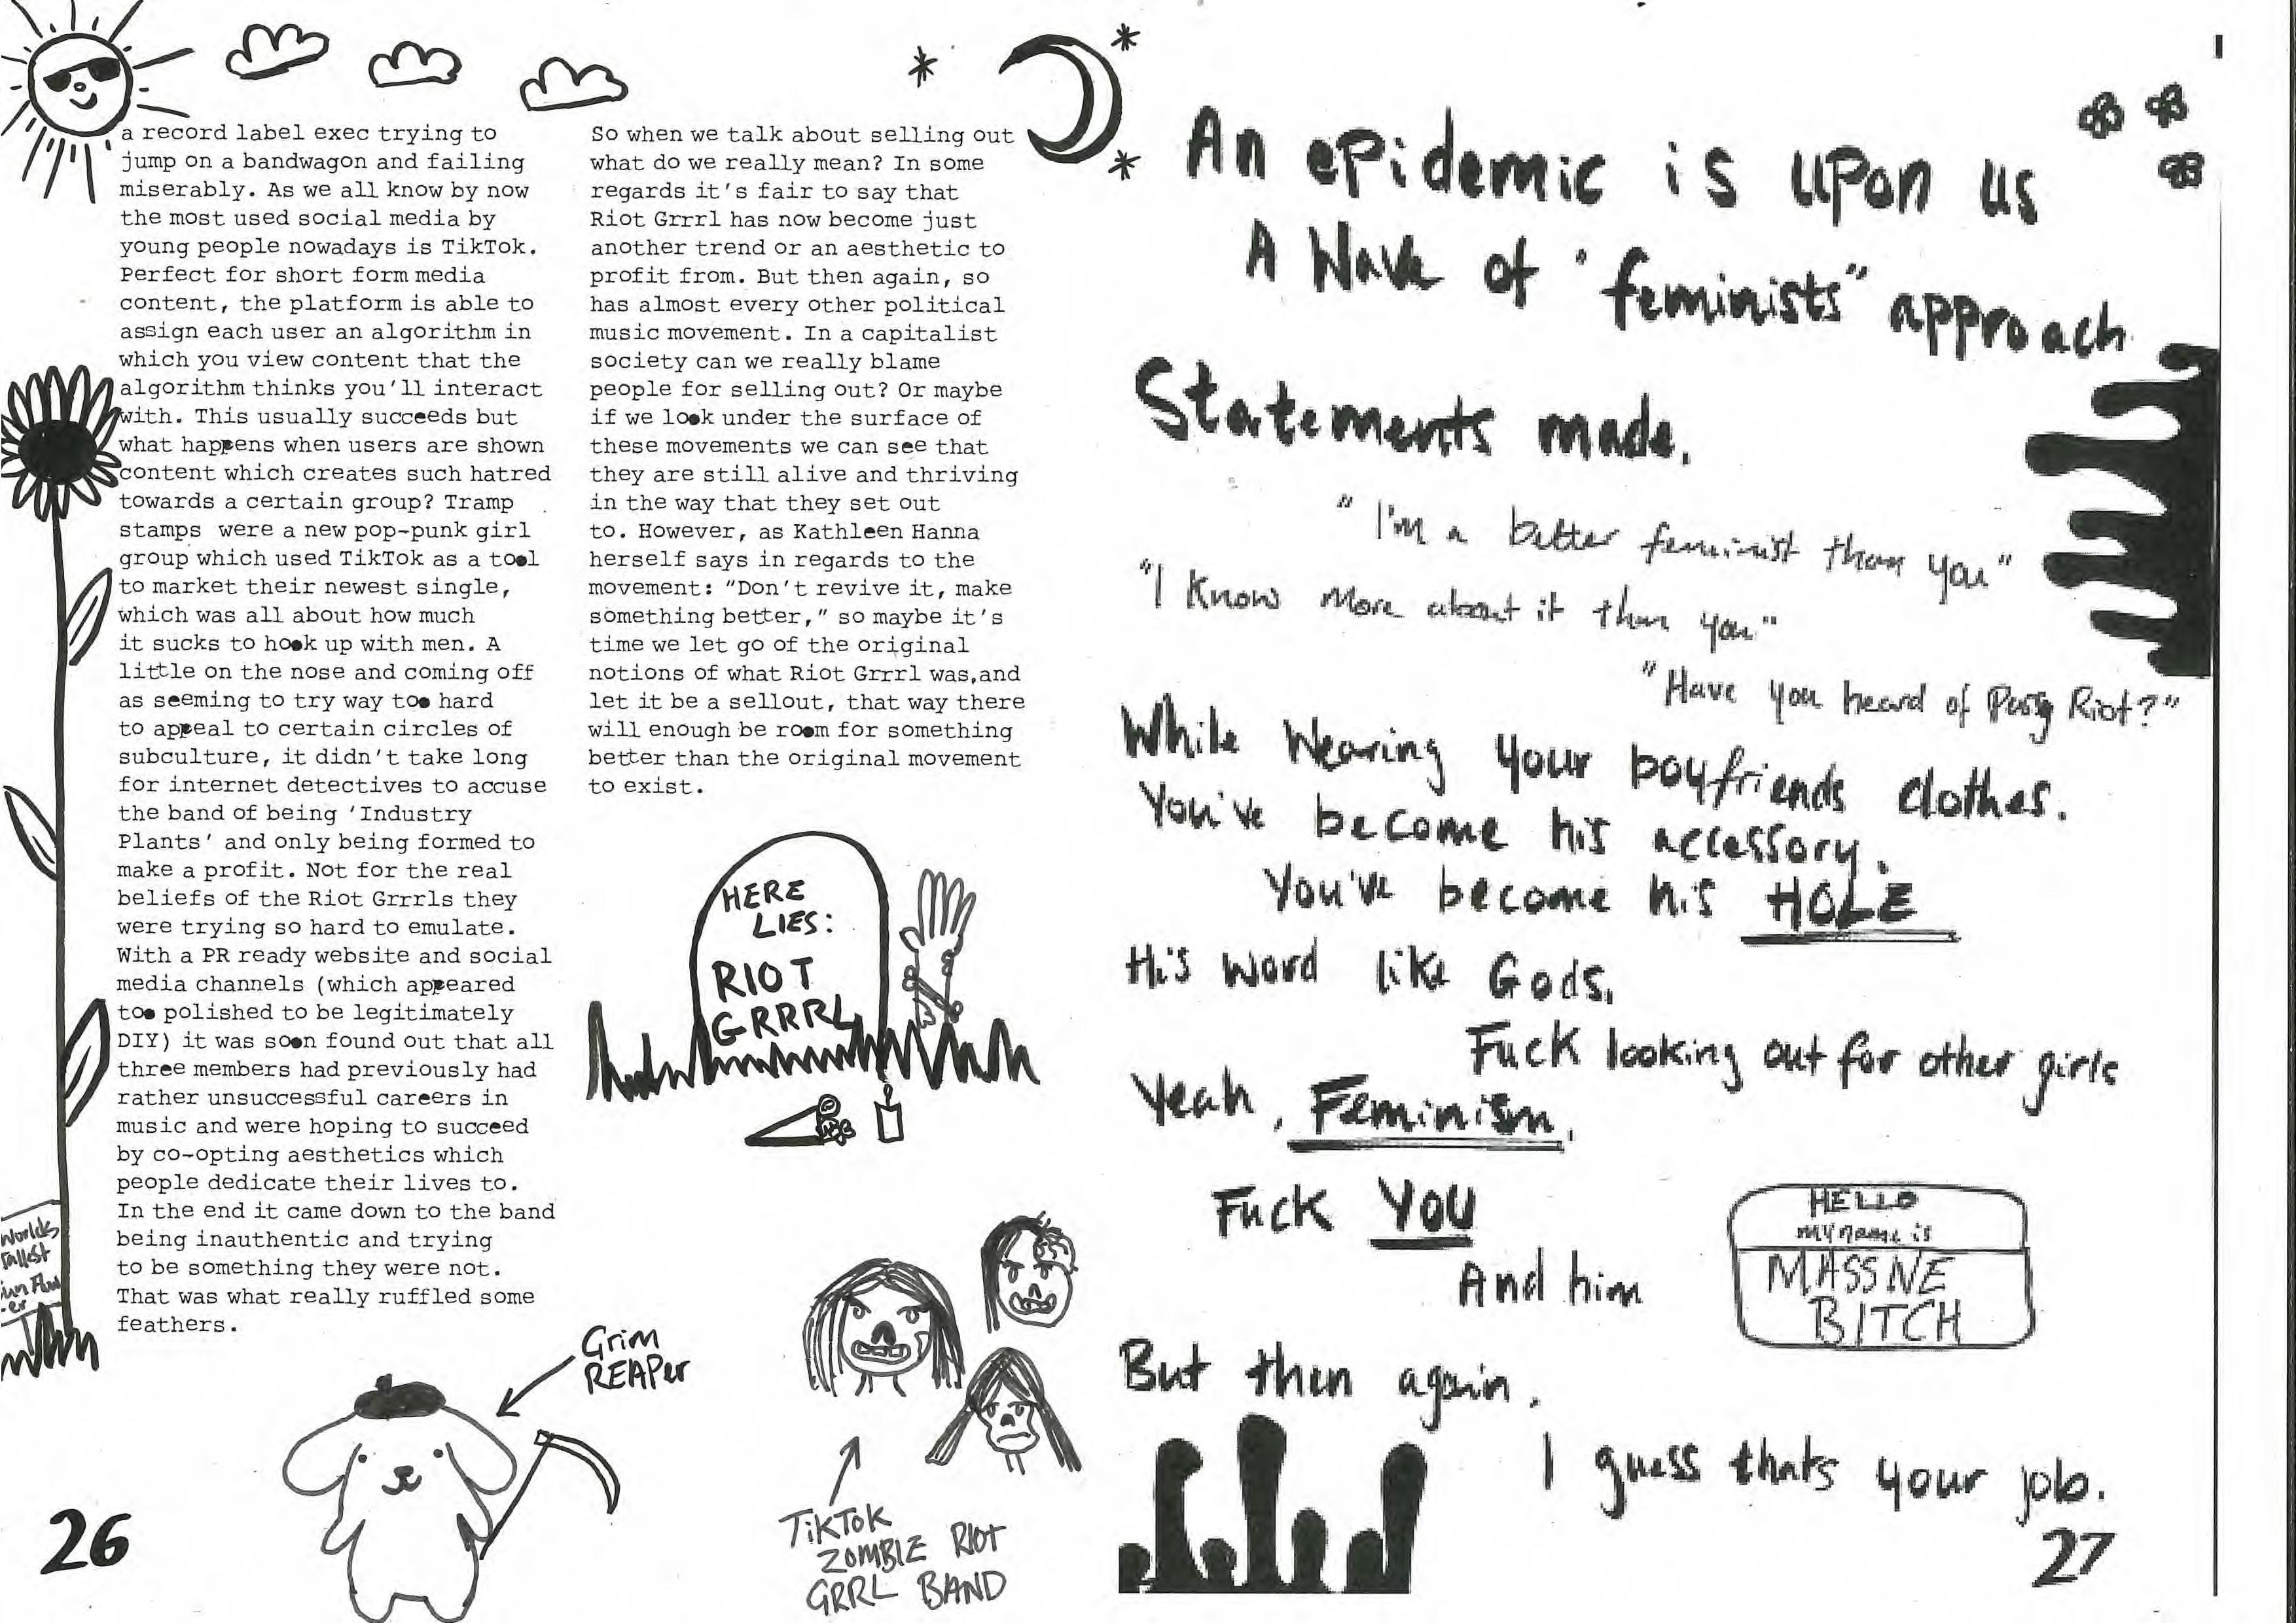 a record label exec trying to
jump on a bandwagon and failing
miserably. As we all know by now
the most used social media by
young people nowadays is TikTok.
Perfect for short form media
content, the platform is able to
assign each user an algorithm in
which you view content that the
algorithm thinks you'll interact
with. This usually succeeds but
what happens when users are shown
content which creates such hatred
towards a certain group? Tramp
stamps were a new pop-punk girl
group which used TikTok as a tool
to market their newest single,
which was all about how much
it sucks to hook up with men. A
little on the nose and coming off
as seeming to try way too hard
to appeal to certain circles of
subculture, it didn't take long
for internet detectives to accuse
the band of being 'Industry
Plants' and only being formed to
make a profit. Not for the real
beliefs of the Riot Grrrls they
were trying so hard to emulate.
With a PR ready website and social
media channels (which appeared
too polished to be legitimately
DIY) it was soon found out that all
three members had previously had
rather unsuccessful careers in
music and were hoping to succeed
by co-opting aesthetics which
people dedicate their lives to.
In the end it came down to the band
being inauthentic and trying
to be something they were not.
That was what really ruffled some
feathers.
Worlds
Tallest
Sun Flow
-er
So when we talk about selling out
what do we really mean? In some
regards it's fair to say that
Riot Grrrl has now become just
another trend or an aesthetic to
profit from. But then again, so
has almost every other political
music movement. In a capitalist
society can we really blame
people for selling out? Or maybe
if we look under the surface of
these movements we can see that
they are still alive and thriving
in the way that they set out
to. However, as Kathleen Hanna
herself says in regards to the
movement: "Don't revive it, make
something better," so maybe it's
time we let go of the original
notions of what Riot Grrrl was,and
let it be a sellout, that way there
will enough be room for something
better than the original movement
to exist.
HERE
LIES:
RIOT
GRRRL
Grim
REAPer
TikTok
ZOMBIE RIOT
GRRL BAND
26
An epidemic is upon us
A Wave of "feminists" approach
Statements made.
"I'm a better feminist than you"
"I Know More about it than you"
"Have you heard of Pussy Riot?"
While Wearing your boyfriends clothes.
You've become his accessory.
You've become his HOLE
His word like Gods.
Fuck looking out for other girls
Yeah, Feminism.
Fuck YOU
And him
HELLO
my name is
MASSIVE
BITCH
But then again.
I guess thats your job.
27